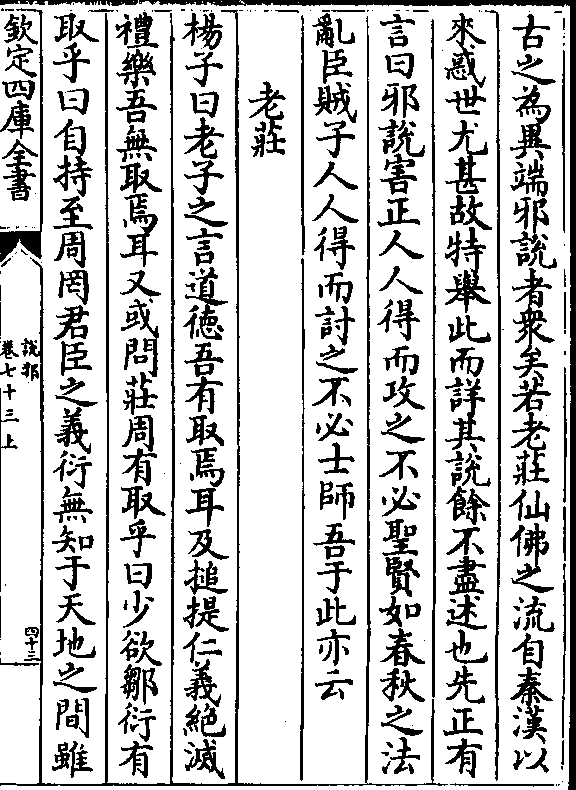 古之為異端邪說者衆矣若老莊仙佛之流自秦漢以
來惑世尤甚故特舉此而詳其說餘不盡述也先正有
言曰邪說害正人人得而攻之不必聖賢如春秋之法
亂臣賊子人人得而討之不必士師吾于此亦云
老莊
楊子曰老子之言道德吾有取焉耳及搥提仁義絶滅
禮樂吾無取焉耳又或問莊周有取乎曰少欲鄒衍有
取乎曰自持至周罔君臣之義衍無知于天地之間雖
欽定四庫全書
說郛
卷七十三上
四十三